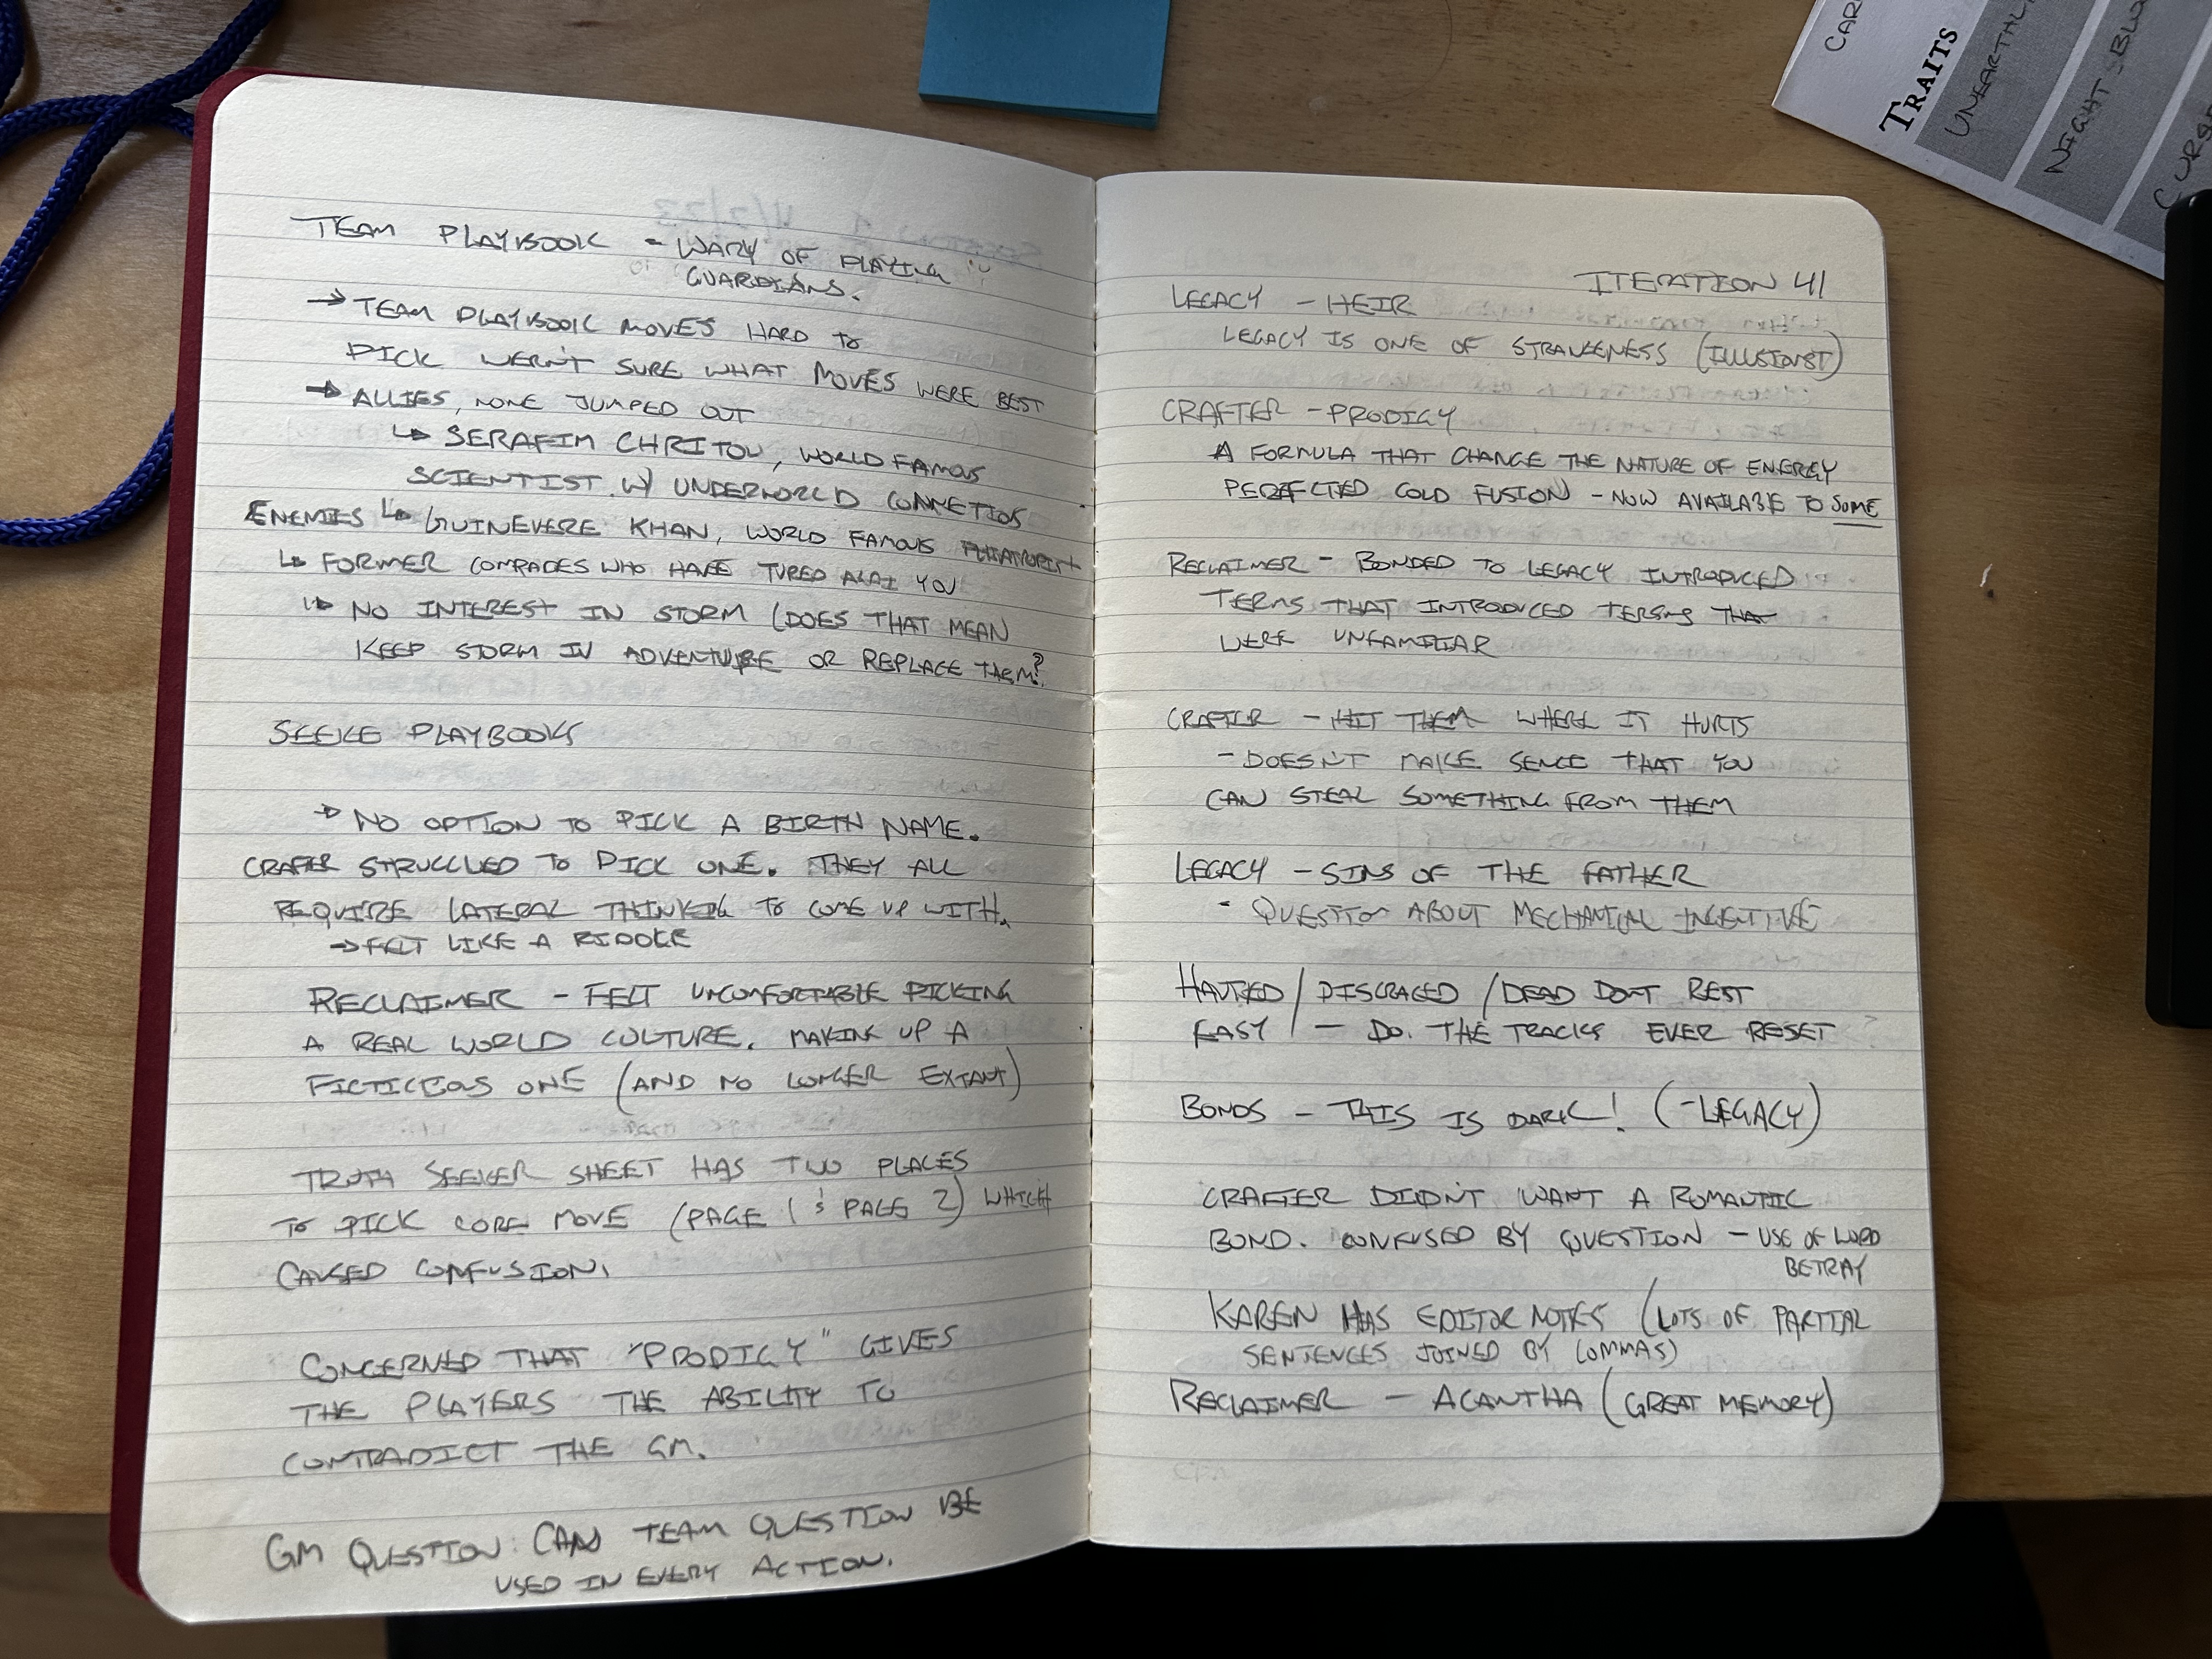 TEAM PLAYBOOK - WARY OF PLAYING
GUARDIANS.
→ TEAM PLAYBOOK MOVES HARD TO
PICK WERN'T SURE WHAT MOVES WERE BEST
→ ALLIES, NONE JUMPED OUT
↳ SERAFIM CHRITOU, WORLD FAMOUS
SCIENTIST W/ UNDERWORLD CONNETIOS
ENEMIES ↳ GUINEVERE KHAN, WORLD FAMOUS
↳ FORMER COMRADES WHO HAVE TURED YOU
↳ NO INTEREST IN STORM (DOES THAT MEAN
KEEP STORM IN ADVENTURE OR REPLACE THEM?
SEEKE PLAYBOOKS
→ NO OPTION TO PICK A BIRTH NAME.
CRAFER STRUGGLED TO PICK ONE. THEY ALL
REQUIRE LATERAL THINKING TO COME UP WITH.
→ FELT LIKE A RIDDLE
RECLAIMER - FELT UNCOMFORTABLE PICKING
A REAL WORLD CULTURE. MAKING UP A
FICTICEOUS ONE (AND NO LONGER EXTANT)
TRUTH SEEKER SHEET HAS TWO PLACES
TO PICK CORE MOVE (PAGE 1 & PAGE 2) WHICH
CAUSED CONFUSION.
CONCERNED THAT "PRODIGY" GIVES
THE PLAYERS THE ABILITY TO
CONTRADICT THE GM.
GM QUESTION: CAN TEAM QUESTION BE
USED IN EVERY ACTION.
ITERATION 41
LEGACY - HEIR
LEGACY IS ONE OF STRANGENESS (ILLUSIONIST)
CRAFTER - PRODIGY
A FORMULA THAT CHANGE THE NATURE OF ENERGY
PERFECTED COLD FUSION - NOW AVAILABLE TO SOME
RECLAIMER - BONDED TO LEGACY INTRODUCED
TERMS THAT INTRODUCED TERMS THAT
WERE UNFAMILIAR
CRAFTER - HIT THEM WHERE IT HURTS
- DOESN'T MAKE SENCE THAT YOU
CAN STEAL SOMETHING FROM THEM
LEGACY - SINS OF THE FATHER
- QUESTION ABOUT MECHANICAL INCENTIVE
HAUTED / DISGRACED / DEAD DON'T REST
EASY / - DO. THE TRACKS EVER RESET ?
BONDS - THIS IS DARK! (-LEGACY)
CRAFTER DIDN'T WANT A ROMANTIC
BOND. CONFUSED BY QUESTION - USE OF WORD
BETRAY
KAREN HAS EDITOR NOTES (LOTS OF PARTIAL
SENTENCES JOINED BY COMMAS)
RECLAIMER - ACANTHA (GREAT MEMORY)
TRAITS